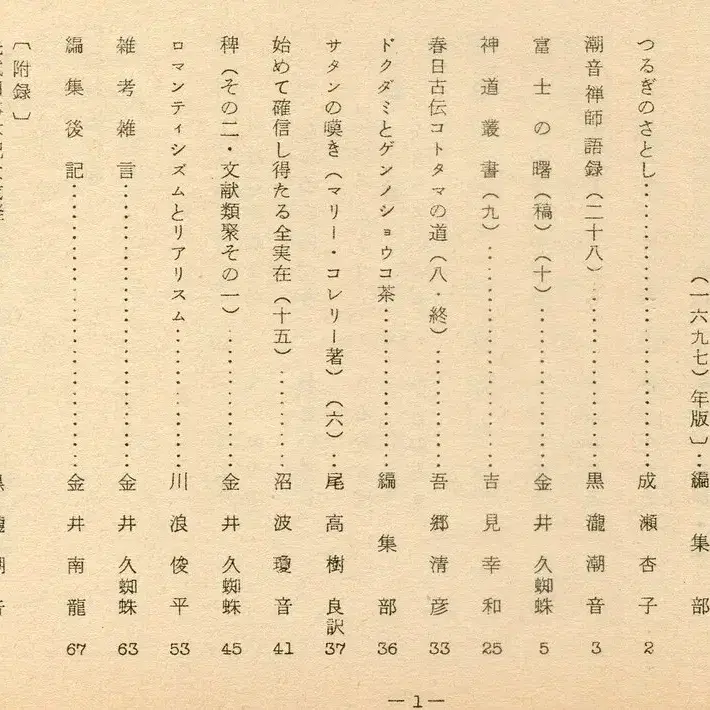 （一六九七）年版〕‥編集部
つるぎのさとし‥‥‥‥‥‥‥‥‥‥成瀬杏子 2
潮音禅師語録（二十八）‥‥‥‥‥‥黒瀧潮音 3
富士の曙（稿）（十）‥‥‥‥‥‥‥金井久蜘蛛 5
神道叢書（九）‥‥‥‥‥‥‥‥‥‥吉見幸和 25
春日古伝コトタマの道（八・終）‥‥‥‥吾郷清彦 33
ドクダミとゲンノショウコ茶‥‥‥‥‥‥編集部 36
サタンの嘆き（マリー・コレリー著）（六）‥尾高樹良訳 37
始めて確信し得たる全実在（十五）‥‥‥沼波瓊音 41
稗（その二・文献類聚その一）‥‥‥‥‥金井久蜘蛛 45
ロマンティシズムとリアリスム‥‥‥‥‥川浪俊平 53
雑考雑言‥‥‥‥‥‥‥‥‥‥‥‥金井久蜘蛛 63
編集後記‥‥‥‥‥‥‥‥‥‥‥‥金井南龍 67
〔附録〕
—1—